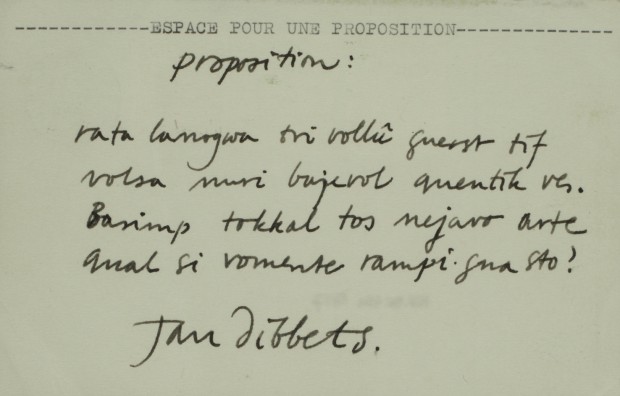 ------------ESPACE POUR UNE PROPOSITION--------------
proposition:
rata lanogwa tri vollû guerst tif
volsa nuri bajevol quentik ves.
Barimp tokkal tos nejavo arte
qual si vomente rampi gna sto?
Jan Dibbets.